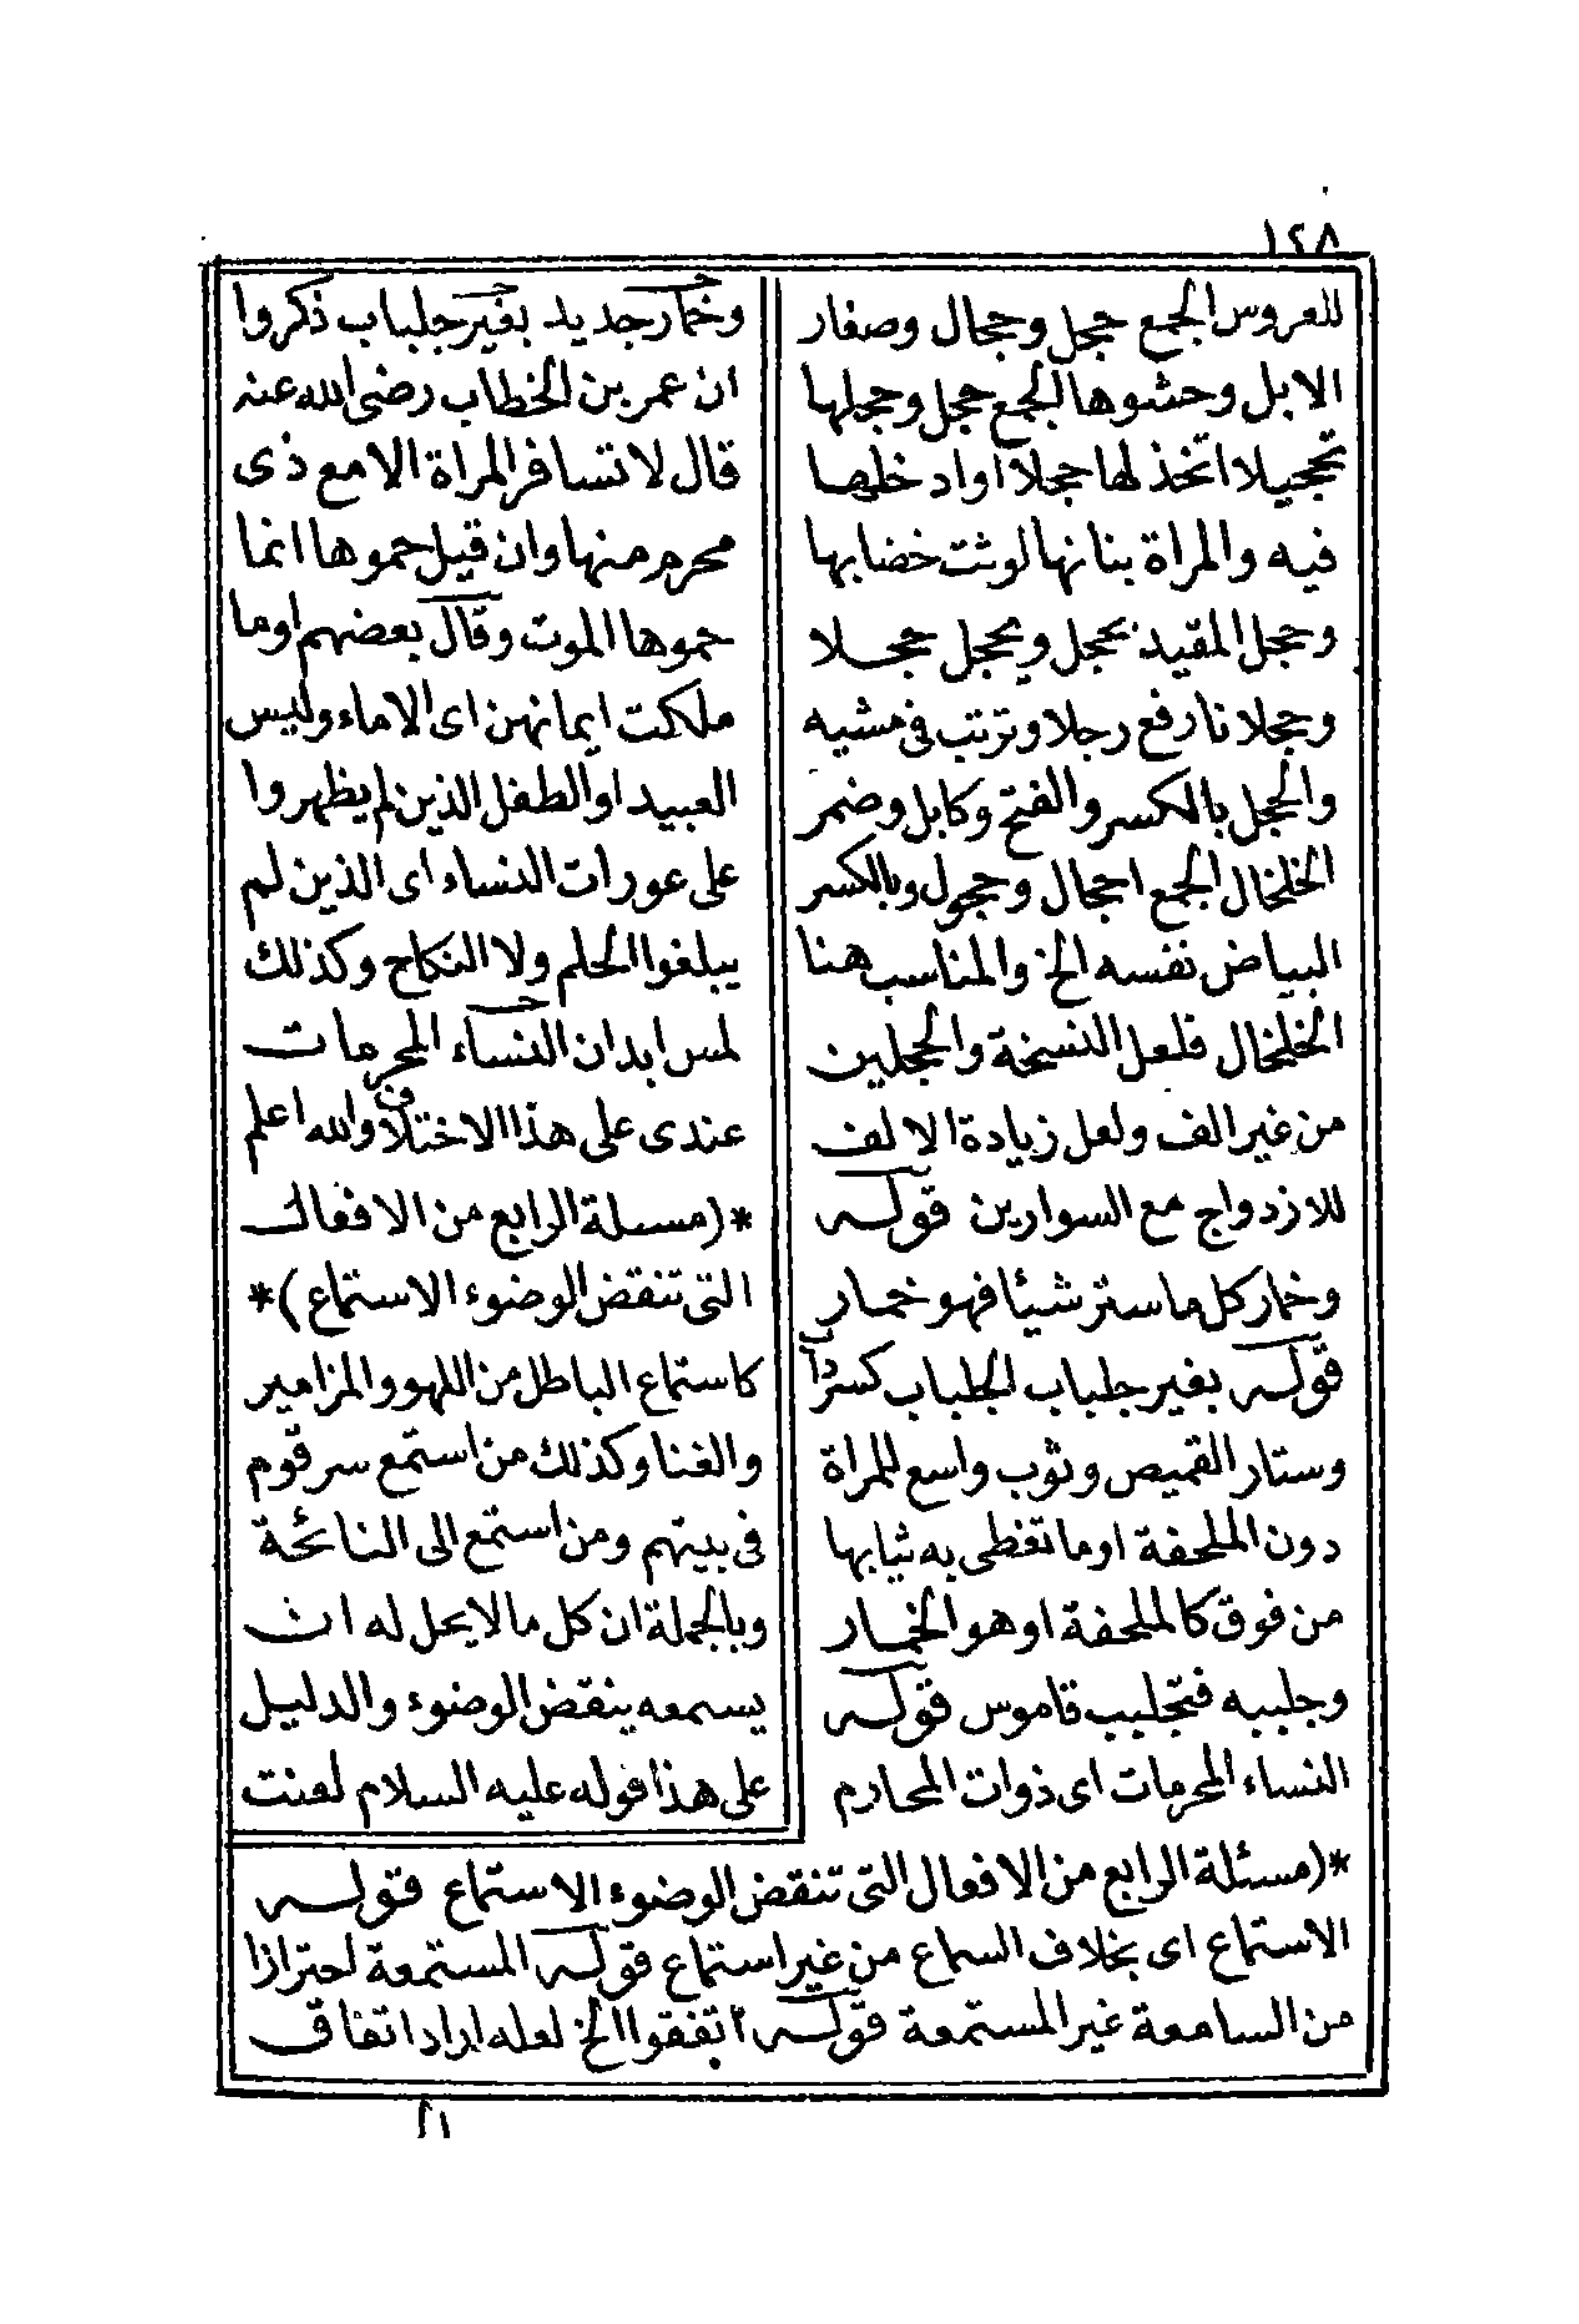 ١٢٨
للعروس الجمع حجل وحجال وصغار
الابل وحشوها الجمع حجل وحجلها
تحجيلا اتخذ لها حجلا او ادخلها
فيه والمراة بنانها لوثت خضابها
وحجل المقيد يحجل ويحجل حجلا
وحجلانا رفع رجلا وتريث فى مشيه
والحجل بالكسر والفتح وكابل وضمر
الخلخال الجمع احجال وحجول وبالكسر
البياض نفسه الخ والمناسب هنا
الخلخال فلعل النسخة والحجلين
من غير الف ولعل زيادة الالف
للازدواج مع السوارين قوله
وخمار كل ما ستر شيئا فهو خمار
قوله بغير جلباب الجلباب كسرداب
وستار القميص وثوب واسع للمراة
دون الملحفة او ما تغطى به ثيابها
من فوق كالملحفة او هو الخمار
وجلببه فتجلبب قاموس قوله
النساء المحرمات اى ذوات المحارم
وخمار جديد بغير جلباب ذكروا
ان عمر بن الخطاب رضى الله عنه
قال لا تسافر المراة الا مع ذى
محرم منها وان قيل حموها انما
حموها الموت وقال بعضهم او ما
ملكت ايمانهن اى الاماء وليس
العبيد او الطفل الذين لم يظهروا
على عورات النساء اى الذين لم
يبلغوا الحلم ولا النكاح وكذلك
لمس ابدان النساء المحرمات
عندى على هذا الاختلاف والله اعلم
*(مسىلة الرابع من الافعال
التى تنقض الوضوء الاستماع)*
كاستماع الباطل من اللهو والمزامير
والغنا وكذلك من استمع سر قوم
فى بيتهم ومن استمع الى النائحة
وبالجملة ان كل ما لا يحل له ان
يسمعه ينقض الوضوء والدليل
على هذا قوله عليه السلام لعنت
*(مسئلة الرابع من الافعال التى تنقض الوضوء الاستماع قوله
الاستماع اى بخلاف السماع من غير استماع قوله المستمعة احترازا
من السامعة غير المستمعة قوله اتفقوا الخ لعله اراد اتفاق